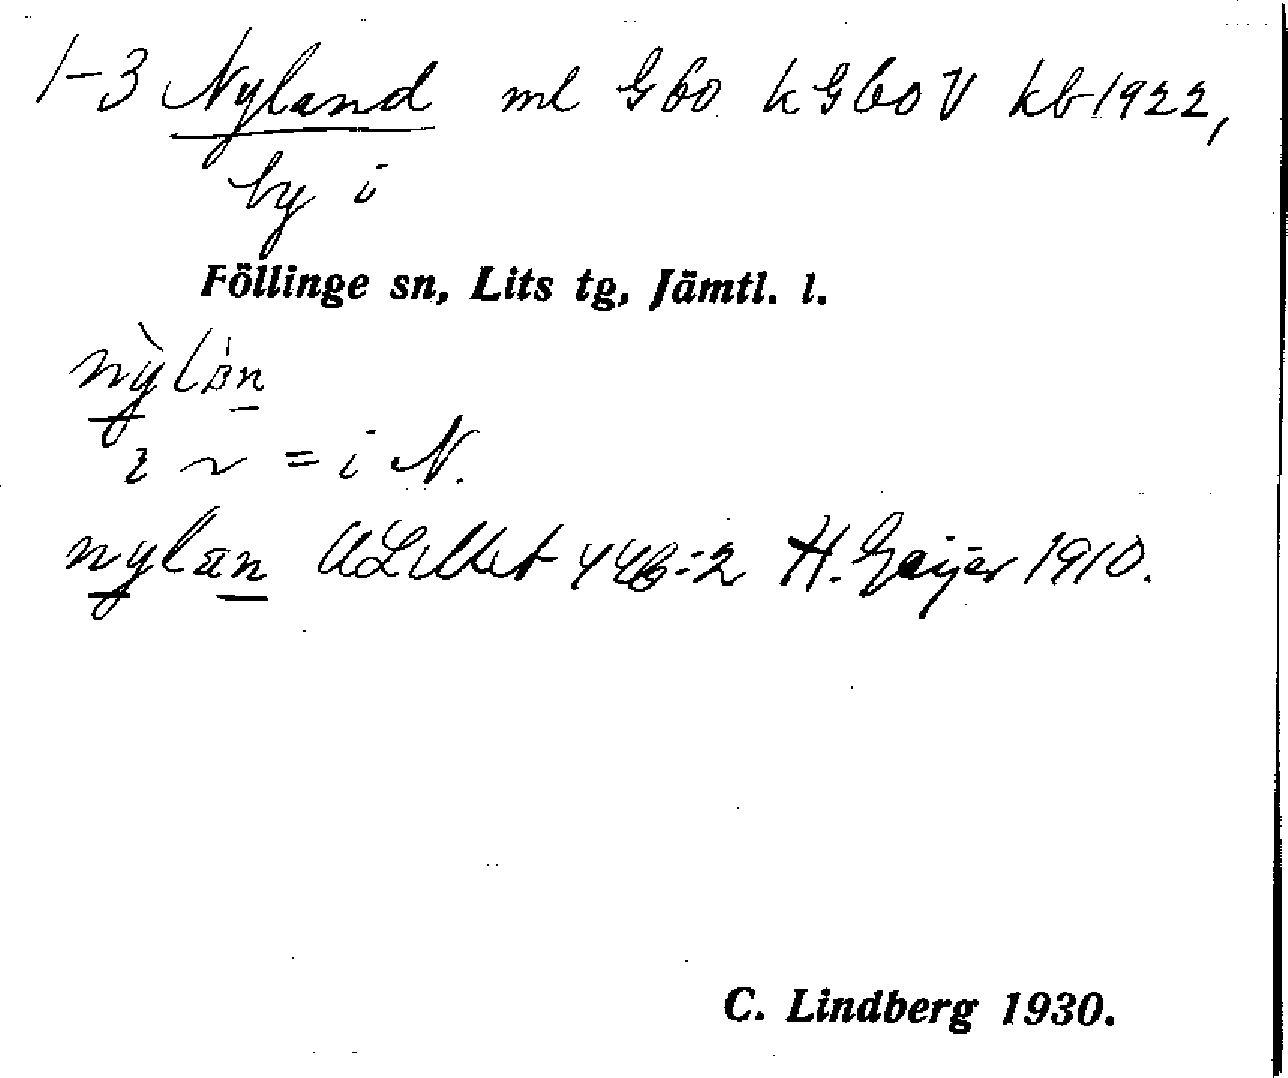 1-3 Nyland ml Gbo kGboV kb 1922,
by i
Föllinge sn, Lits tg, Jämtl. l.
nỳlán
= i N.
nylan 44b:2 H. Geijer 1910.
C. Lindberg 1930.